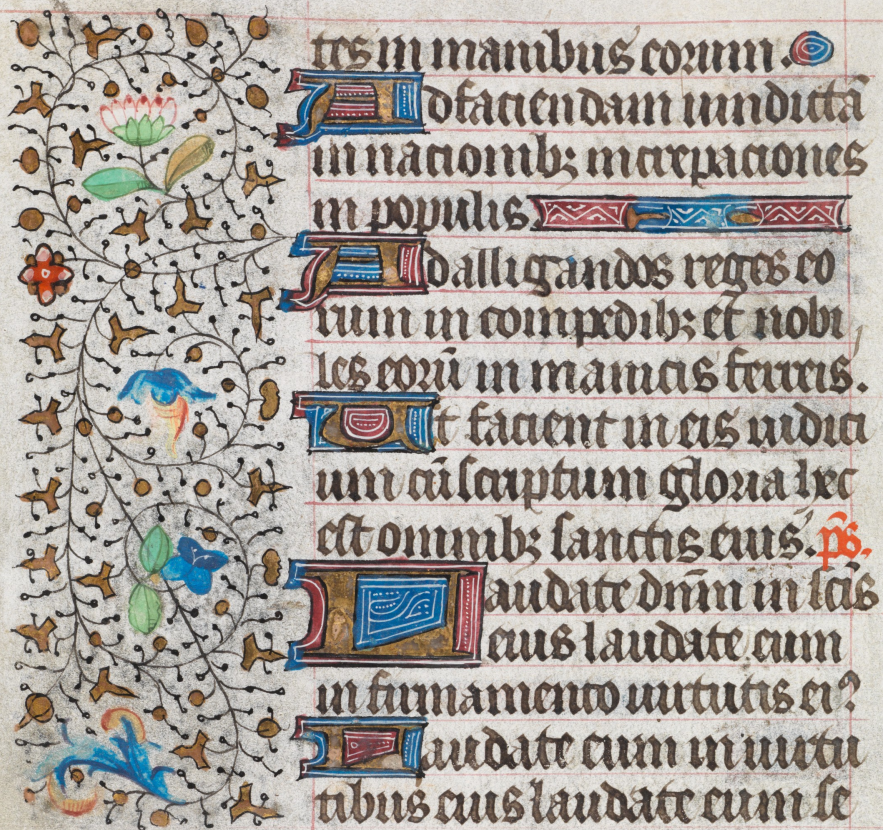 tes in manibus eorum.
Ad faciendam uindictā
in nacionibꝫ increpaciones
in populis
Ad alligandos reges eo
rum in compedibꝫ et nobi
les eorū in manicis ferreis.
Et facient in eis iudici
um cū scriptum gloria hec
est omnibꝫ sanctis eius. p̄s.
Laudate dn̄m in sc̄is
eius laudate eum
in firmamento uirtutis eiꝰ
Laudate eum in uirtu
tibus eius laudate eum se